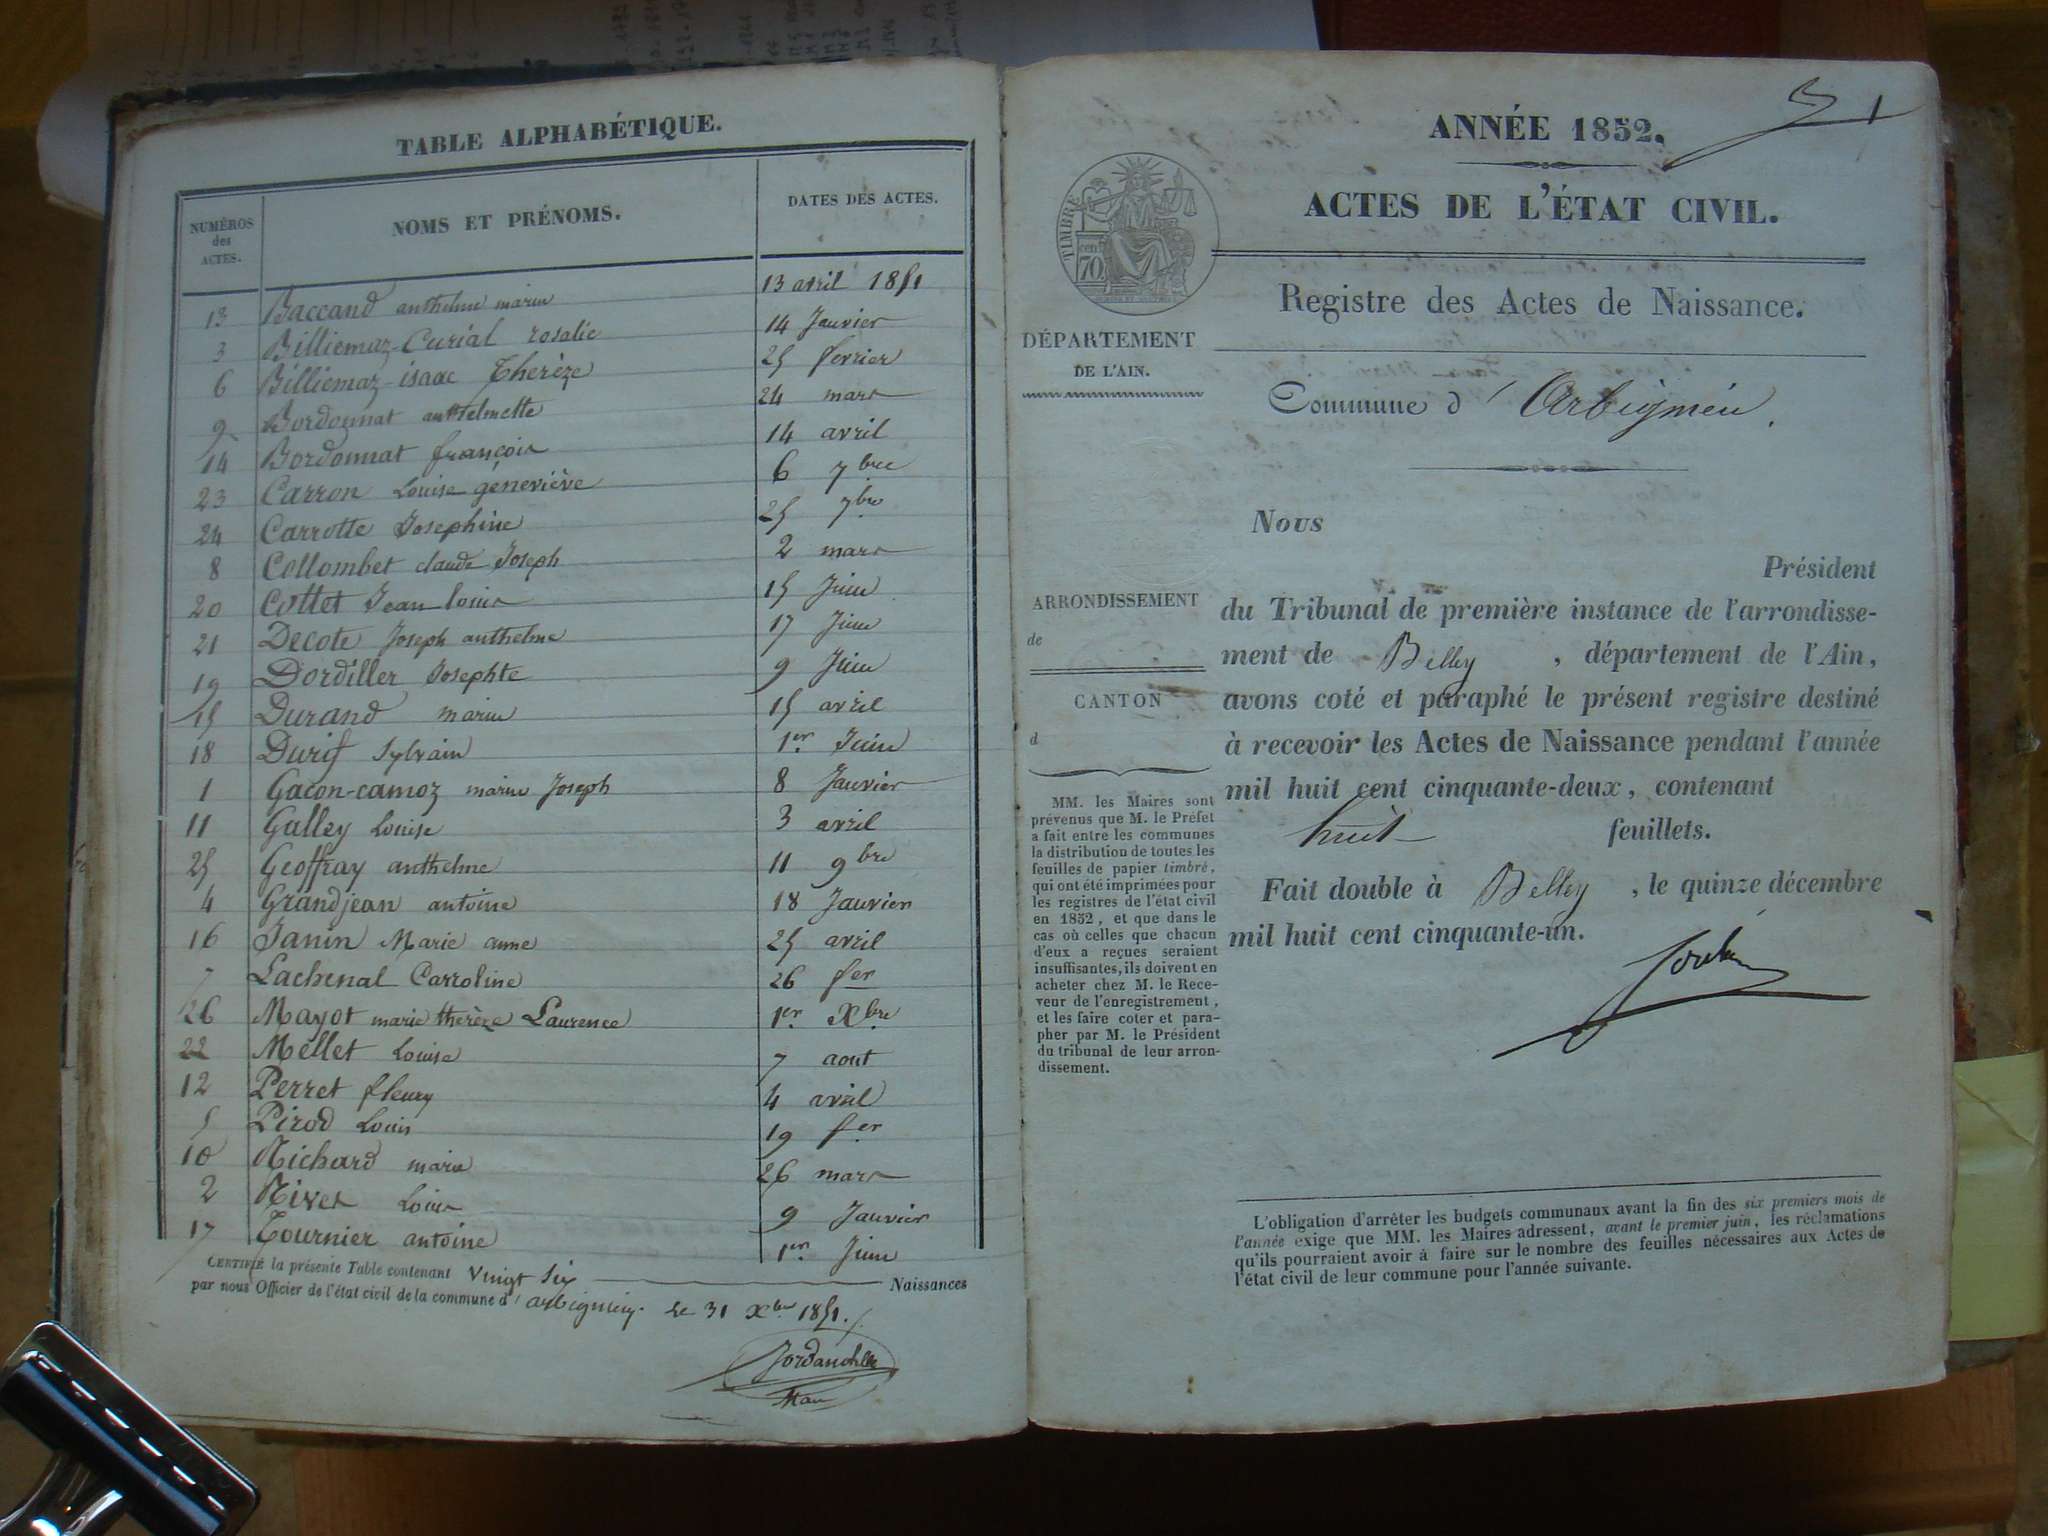 TABLE ALPHABÉTIQUE.
NUMÉROS des ACTES. NOMS ET PRÉNOMS. DATES DES ACTES.
13 Baccand anthelme marin 13 avril 1851
3 Billiemaz-Curial rosalie 14 Janvier
6 Billiemaz-isaac Thérèze 25 fevrier
9 Bordonnat anthelmette 24 mars
14 Bordonnat françois 14 avril
23 Carron Louise geneviève 6 7bre
24 Carrotte Josephine 25 7bre
8 Collombet claude Joseph 2 mars
20 Cottet Jean louis 15 Juin
21 Decote Joseph anthelme 17 Juin
19 Dordiller Josephte 9 Juin
15 Durand marin 15 avril
18 Durif Sylvain 1er Juin
1 Gacon-camoz marin Joseph 8 Janvier
11 Galley Louise 3 avril
25 Geoffray anthelme 11 9bre
4 Grandjean antoine 18 Janvier
16 Janin Marie anne 25 avril
7 Lachenal Carroline 26 fer
26 Mayot marie therèze Laurence 1er Xbre
22 Mellet Louise 7 aout
12 Perret fleury 4 avril
5 Pirod Louis 19 fer
10 Richard marie 26 mars
2 Rivet Louis 9 Janvier
17 Tournier antoine 1er Juin
CERTIFIÉ la présente Table contenant vingt six Naissances
par nous Officier de l'état civil de la commune d' arbignieu. Le 31 Xbre 1851.
ANNÉE 1852.
1
ACTES DE L'ÉTAT CIVIL.
TIMBRE
cen.
70
Registre des Actes de Naissance.
DÉPARTEMENT
DE L'AIN.
Commune d' Arbignieu.
Nous
Président
ARRONDISSEMENT
de
CANTON
d
du Tribunal de première instance de l'arrondisse-
ment de Belley, département de l'Ain,
avons coté et paraphé le présent registre destiné
à recevoir les Actes de Naissance pendant l'année
mil huit cent cinquante-deux, contenant
huit feuillets.
Fait double à Belley, le quinze décembre
mil huit cent cinquante-un.
MM. les Maires sont
prévenus que M. le Préfet
a fait entre les communes
la distribution de toutes les
feuilles de papier timbré,
qui ont été imprimées pour
les registres de l'état civil
en 1852, et que dans le
cas où celles que chacun
d'eux a reçues seraient
insuffisantes, ils doivent en
acheter chez M. le Rece-
veur de l'enregistrement,
et les faire coter et para-
pher par M. le Président
du tribunal de leur arron-
dissement.
L'obligation d'arrêter les budgets communaux avant la fin des six premiers mois de
l'année exige que MM. les Maires adressent, avant le premier juin, les réclamations
qu'ils pourraient avoir à faire sur le nombre des feuilles nécessaires aux Actes de
l'état civil de leur commune pour l'année suivante.